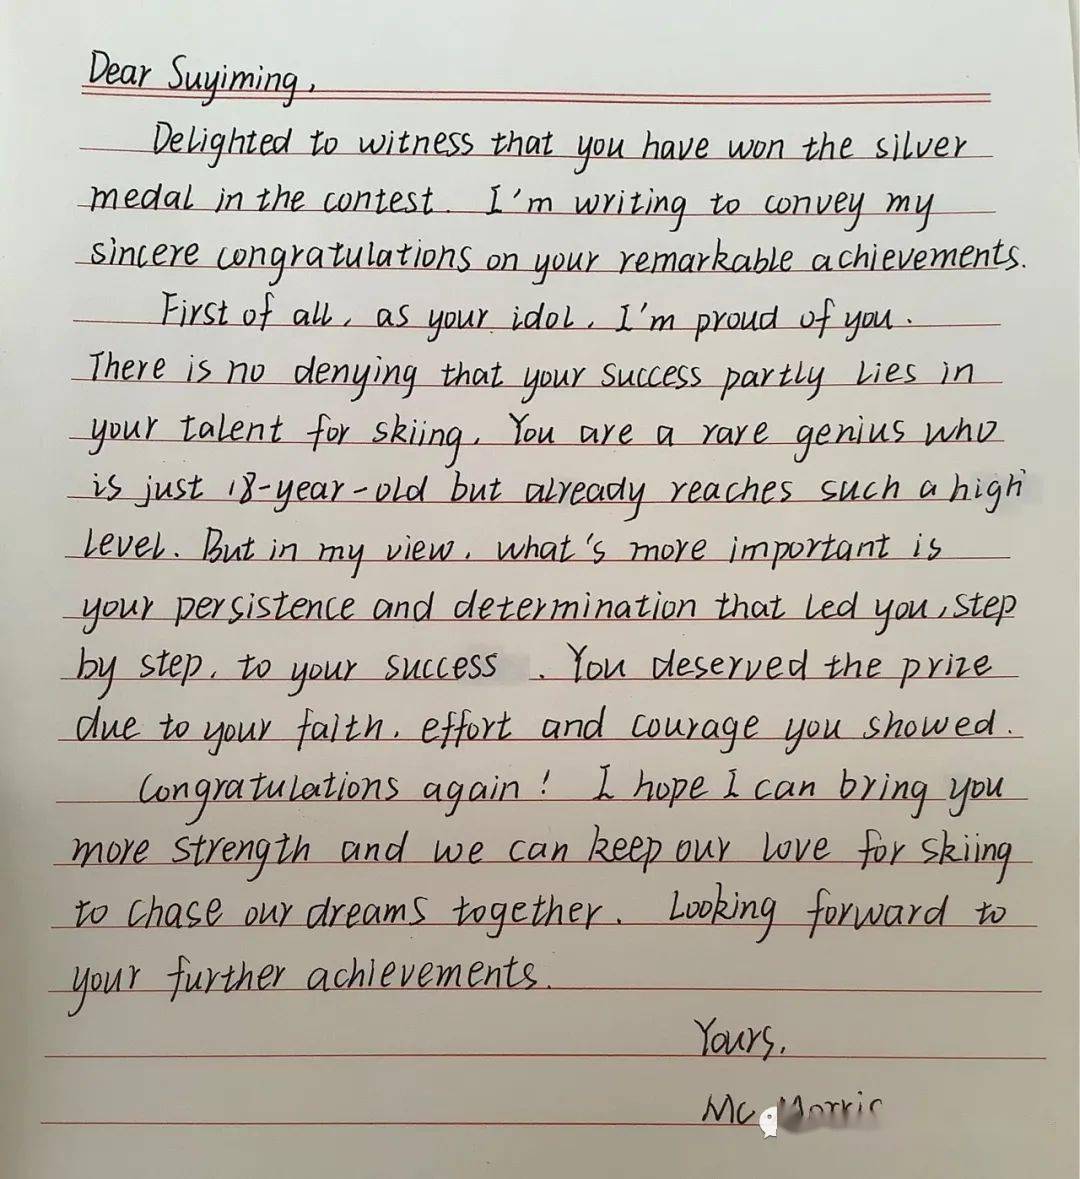 Dear Suyiming,
Delighted to witness that you have won the silver
medal in the contest. I'm writing to convey my
sincere congratulations on your remarkable achievements.
First of all, as your idol, I'm proud of you.
There is no denying that your success partly lies in
your talent for skiing. You are a rare genius who
is just 18-year-old but already reaches such a high
level. But in my view, what's more important is
your persistence and determination that led you, step
by step, to your success. You deserved the prize
due to your faith, effort and courage you showed.
Congratulations again! I hope I can bring you
more strength and we can keep our love for skiing
to chase our dreams together. Looking forward to
your further achievements.
Yours,
Mc Morris